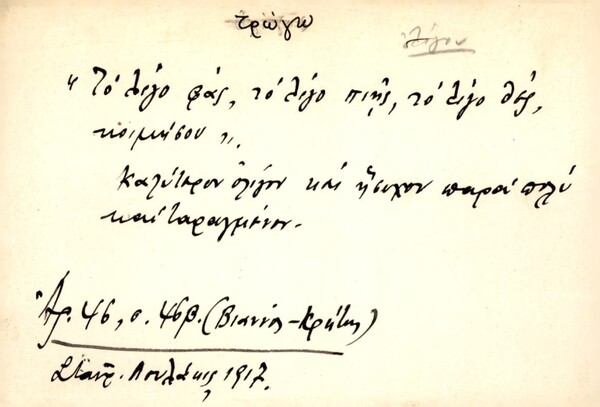 τρώγω
ὀλίγον
"Τό λίγο φάς, τό λίγο πιῇς, τό λίγο θές,
κοιμήσου".
Καλύτερον ὀλίγον καί ἥσυχον παρά πολύ
καί ταραγμένον.
Ἀρ. 46, σ. 46β. (Βιαννός - Κρήτης)
Σταυρ. Λουλάκις 1917.